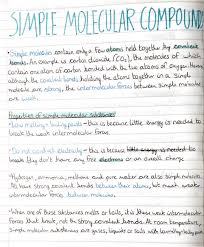 SIMPLE MOLECULAR COMPOUNDS
• Simple molecules contain only a few atoms held together by covalent
bonds. An example is carbon dioxide (CO₂), the molecules of which
contain one atom of carbon bonded with two atoms of oxygen.
although the covalent bonds, holding the atoms together in a simple
molecule are strong, the intermolecular forces between simple molecules
are weak.
Properties of simple molecular substances
• Low melting + boiling points - this is because little energy is needed to
break the weak intermolecular forces.
• Do not conduct electricity - this is because
they don't have any free electrons or an overall charge
• Hydrogen, ammonia, methane and pure water are also simple molecules.
All have strong covalent bonds between their atoms, but much weaker
intermolecular forces between molecules.
• When one of these substances melts or boils, it is these weak intermolecular
forces that break, not the strong covalent bonds. At room temperature,
simple molecular substances are gases, liquids or solids with low